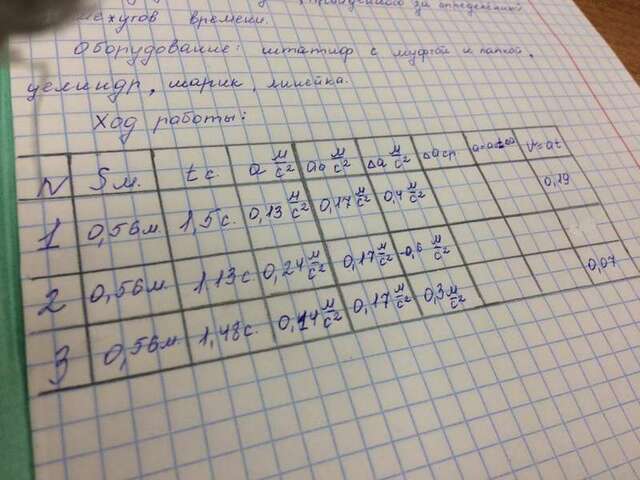 пройденного за определённый
времени.
Оборудование: штатиф с муфтой и лапкой,
целиндр, шарик, линейка.
Ход работы:
N S м. t с. a м/с² aо м/с² Δa м/с² Δaср V=at
1 0,56м 1,5с. 0,13 м/с² 0,17 м/с² 0,4 м/с² 0,19
2 0,56м 1,13с 0,24 м/с² 0,17 м/с² -0,6 м/с²
3 0,56м 1,48с. 0,14 м/с² 0,17 м/с² 0,3 м/с² 0,07